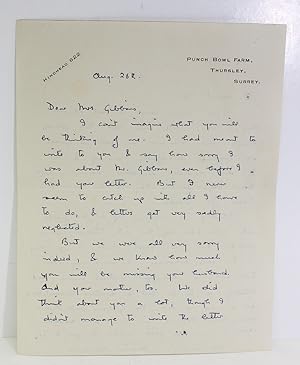 HINDHEAD 822
PUNCH BOWL FARM,
THURSLEY,
SURREY.
Aug. 26th.
Dear Mrs. Gibbons,
I can't imagine what you will
be thinking of me. I had meant to
write to you & say how sorry I
was about Mr. Gibbons, even before I
had your letter. But I never
seem to catch up with all I have
to do, & letters get very sadly
neglected.
But we were all very sorry
indeed, & we know how much
you will be missing your husband.
And your mother, too. We did
think about you a lot, though I
didn't manage to write the letter